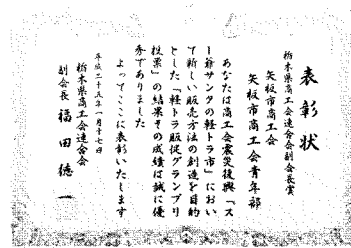 表彰状
栃木県商工会連合会副会長賞
矢板市商工会
矢板市商工会青年部
あなたは商工会震災復興「ス
ー爺サンタの軽トラ市」におい
て新しい販売方法の創造を目的
とした「軽トラ販促グランプリ
投票」の結果その成績は誠に優
秀でありました
よってここに表彰いたします
平成二十五年一月十七日
栃木県商工会連合会
副会長 福田徳一